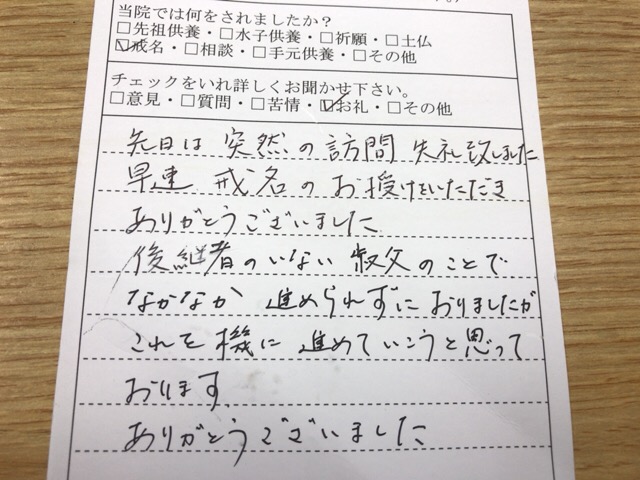 当院では何をされましたか？
□先祖供養・□水子供養・□祈願・□土仏
☑戒名・□相談・□手元供養・□その他
チェックをいれ詳しくお聞かせ下さい。
□意見・□質問・□苦情・☑お礼・□その他
先日は 突然の訪問 失礼致しました
早速 戒名のお授けをいただき
ありがとうございました
後継者のいない 叔父のことで
なかなか 進められずにおりましたが
これを機に 進めていこうと思って
おります
ありがとうございました